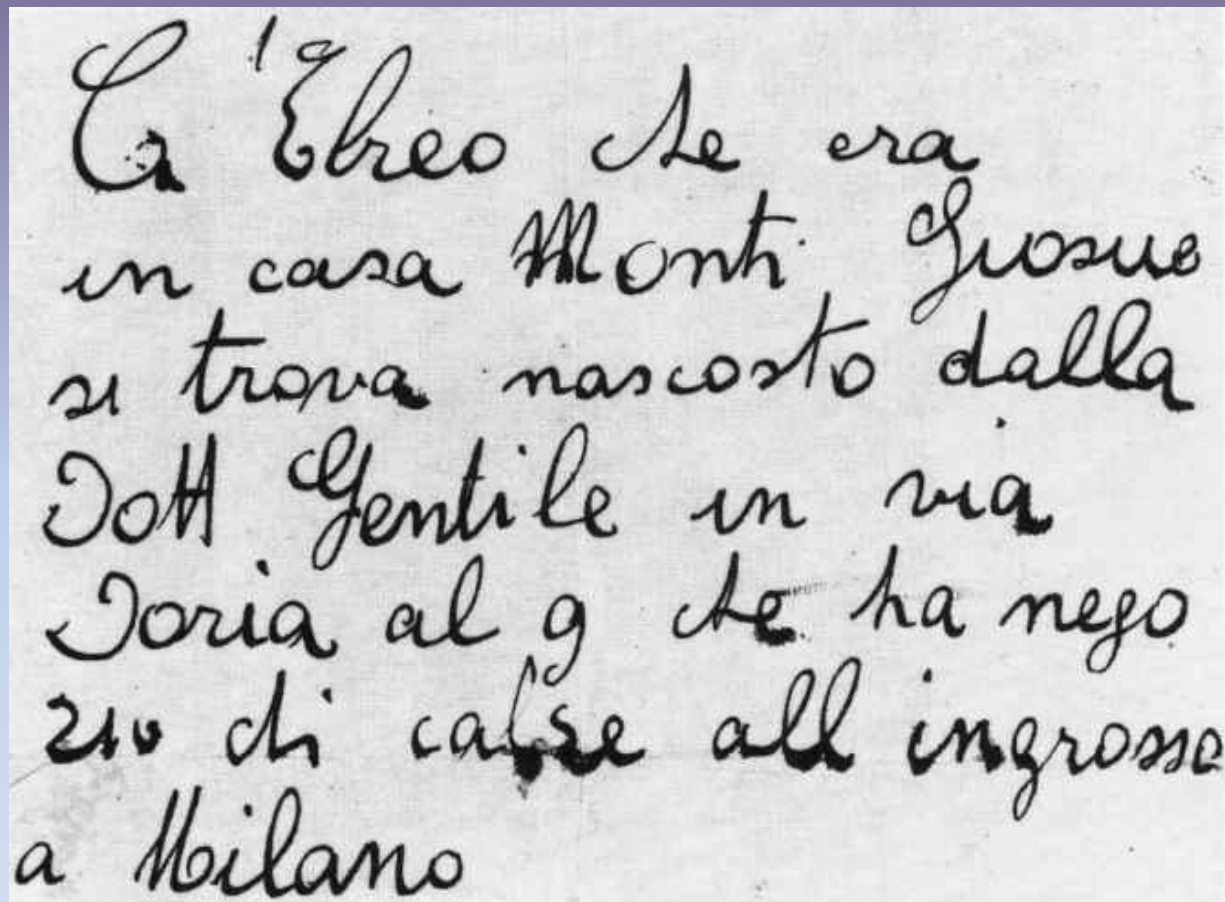 L'Ebreo che era
in casa Monti Giosue
si trova nascosto dalla
Dott Gentile in via
Doria al 9 che ha nego
zio di calse all ingrosso
a Milano